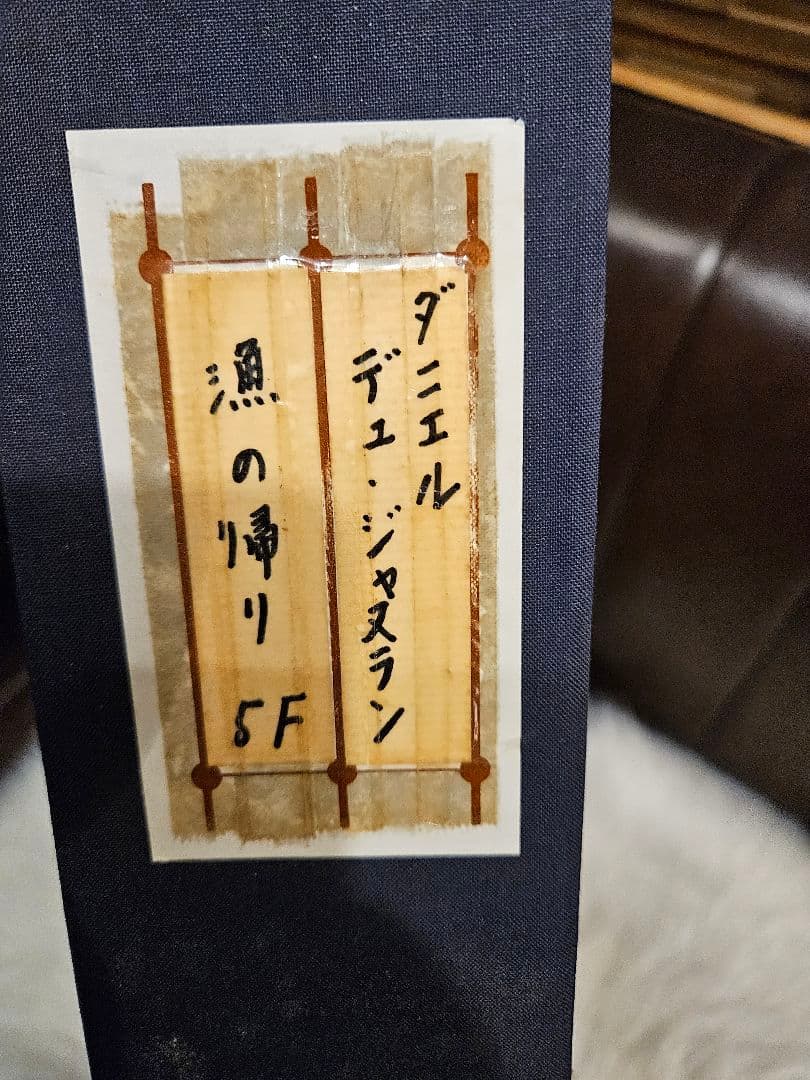 ダニエル
デュ・ジャヌラン
漁の帰り 5F